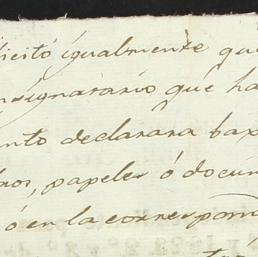 licitó igualmente que
nsignatario que ha
nto declarara bax
bros, papeles ó docum
ó en la correspon